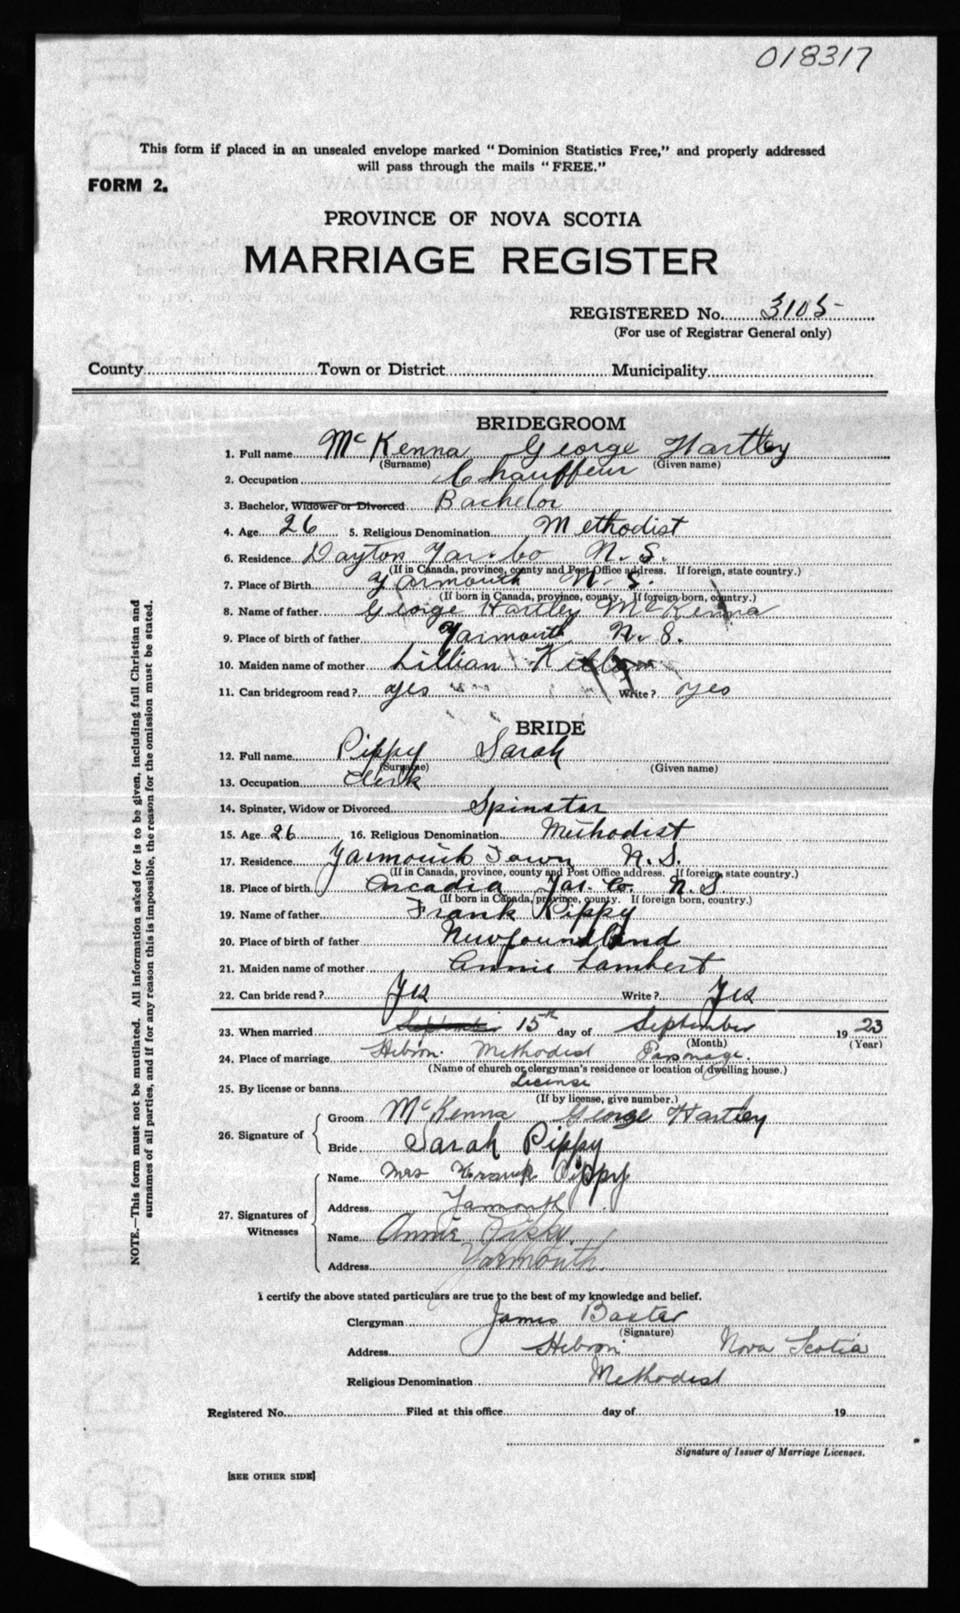 018317
This form if placed in an unsealed envelope marked "Dominion Statistics Free," and properly addressed
will pass through the mails "FREE."
FORM 2.
PROVINCE OF NOVA SCOTIA
MARRIAGE REGISTER
REGISTERED No. 3105
(For use of Registrar General only)
County Town or District Municipality
BRIDEGROOM
1. Full name McKenna George Hartley
(Surname) (Given name)
2. Occupation Chauffeur
3. Bachelor, Widower or Divorced Bachelor
4. Age 26 5. Religious Denomination Methodist
6. Residence Dayton Yar. Co N.S.
(If in Canada, province, county and Post Office address. If foreign, state country.)
7. Place of Birth Yarmouth N.S.
(If born in Canada, province, county. If foreign born, country.)
8. Name of father George Hartley McKenna
9. Place of birth of father Yarmouth N.S.
10. Maiden name of mother Lillian
11. Can bridegroom read? yes Write? yes
BRIDE
12. Full name Pippy Sarah
(Surname) (Given name)
13. Occupation Clerk
14. Spinster, Widow or Divorced Spinster
15. Age 26 16. Religious Denomination Methodist
17. Residence Yarmouth Town N.S.
(If in Canada, province, county and Post Office address. If foreign, state country.)
18. Place of birth Arcadia Yar. Co. N.S
(If born in Canada, province, county. If foreign born, country.)
19. Name of father Frank Pippy
20. Place of birth of father Newfoundland
21. Maiden name of mother Annie Lambert
22. Can bride read? Yes Write? Yes
23. When married September 15th day of September 1923
(Month) (Year)
24. Place of marriage Hebron Methodist Parsonage.
(Name of church or clergyman's residence or location of dwelling house.)
25. By license or banns License
(If by license, give number.)
26. Signature of
Groom McKenna George Hartley
Bride Sarah Pippy
27. Signatures of Witnesses
Name Mrs Frank Pippy
Address Yarmouth
Name Annie Pippy.
Address Yarmouth.
I certify the above stated particulars are true to the best of my knowledge and belief.
Clergyman James Baxter
(Signature)
Address Hebron Nova Scotia
Religious Denomination Methodist
Registered No. Filed at this office day of 19
Signature of Issuer of Marriage Licenses.
[SEE OTHER SIDE]
NOTE.—This form must not be mutilated. All information asked for is to be given, including full Christian and
surnames of all parties, and if for any reason this is impossible, the reason for the omission must be stated.